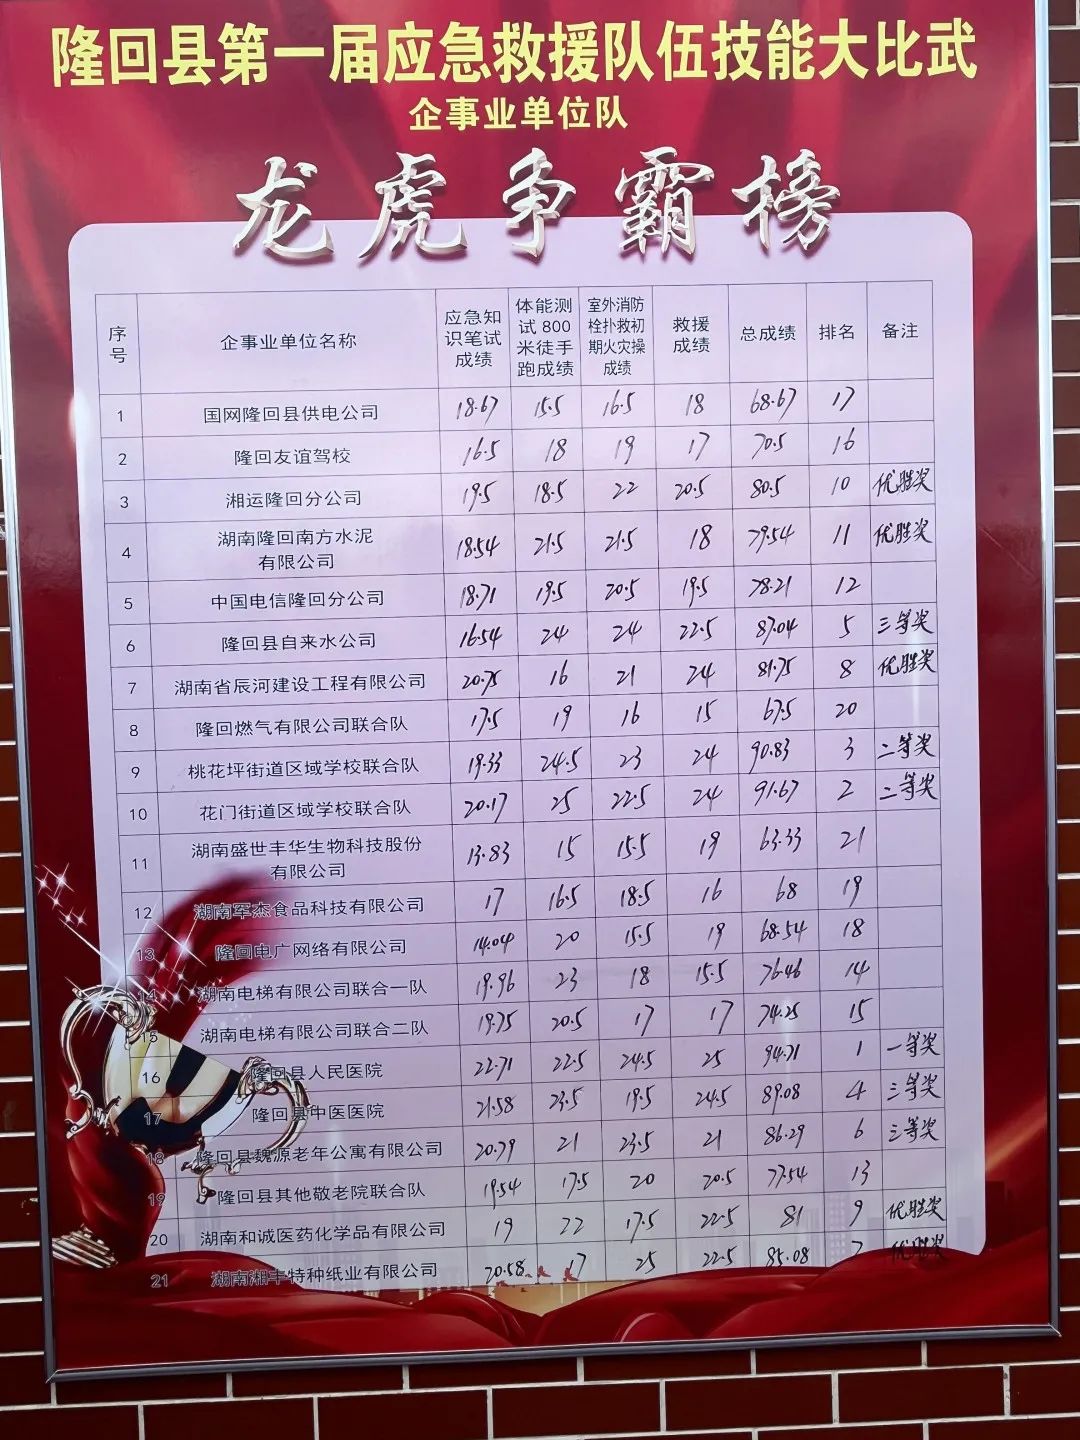 隆回县第一届应急救援队伍技能大比武
企事业单位队
龙虎争霸榜
序号 企事业单位名称 应急知识笔试成绩 体能测试800米徒手跑成绩 室外消防栓扑救初期火灾操成绩 救援成绩 总成绩 排名 备注
1 国网隆回县供电公司 18.67 15.5 16.5 18 68.67 17
2 隆回友谊驾校 16.5 18 19 17 70.5 16
3 湘运隆回分公司 19.5 18.5 22 20.5 80.5 10 优胜奖
4 湖南隆回南方水泥有限公司 18.54 21.5 21.5 18 79.54 11 优胜奖
5 中国电信隆回分公司 18.71 19.5 20.5 19.5 78.21 12
6 隆回县自来水公司 16.54 24 24 22.5 87.04 5 三等奖
7 湖南省辰河建设工程有限公司 20.75 16 21 24 81.75 8 优胜奖
8 隆回燃气有限公司联合队 17.5 19 16 15 67.5 20
9 桃花坪街道区域学校联合队 19.33 24.5 23 24 90.83 3 二等奖
10 花门街道区域学校联合队 20.17 25 22.5 24 91.67 2 二等奖
11 湖南盛世丰华生物科技股份有限公司 13.83 15 15.5 19 63.33 21
12 湖南军杰食品科技有限公司 17 16.5 18.5 16 68 19
13 隆回电广网络有限公司 14.04 20 15.5 19 68.54 18
14 湖南电梯有限公司联合一队 19.96 23 18 15.5 76.46 14
15 湖南电梯有限公司联合二队 19.75 20.5 17 17 74.25 15
16 隆回县人民医院 22.71 22.5 24.5 25 94.71 1 一等奖
17 隆回县中医医院 21.58 23.5 19.5 24.5 89.08 4 三等奖
18 隆回县魏源老年公寓有限公司 20.79 21 23.5 21 86.29 6 三等奖
19 隆回县其他敬老院联合队 19.54 17.5 20 20.5 77.54 13
20 湖南和诚医药化学品有限公司 19 22 17.5 22.5 81 9 优胜奖
21 湖南湘丰特种纸业有限公司 20.58 17 25 22.5 85.08 7 优胜奖